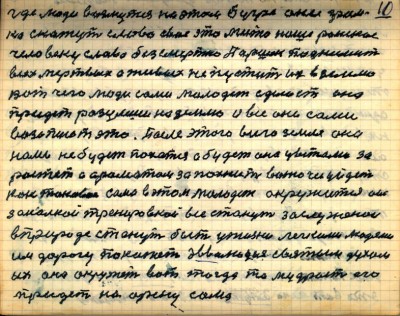 где люди возмутся на этом Бугре они гром- 10
ко скажут слово свое это место наше райское
человеку слава бессмертно Паршек поднимит
всех мертвых а живых не пустит их в землю
вот чего люди сами молодец сделают она
придет разумеши на землю и все они сами
возьпиют это. После этого всего земля она
нами не будит похатся а будет она цветами за
растет а ароматом запохнить вонючи уйдет
как таковое само в этом молодец окружится он
закалкой тренировкой все станут заслуженой
в природе станут быть ужизни легкими людеми
им дорогу покажет Эвванодия святым духом
их она окружет вот тогда то мудрость его
придет на арену сама